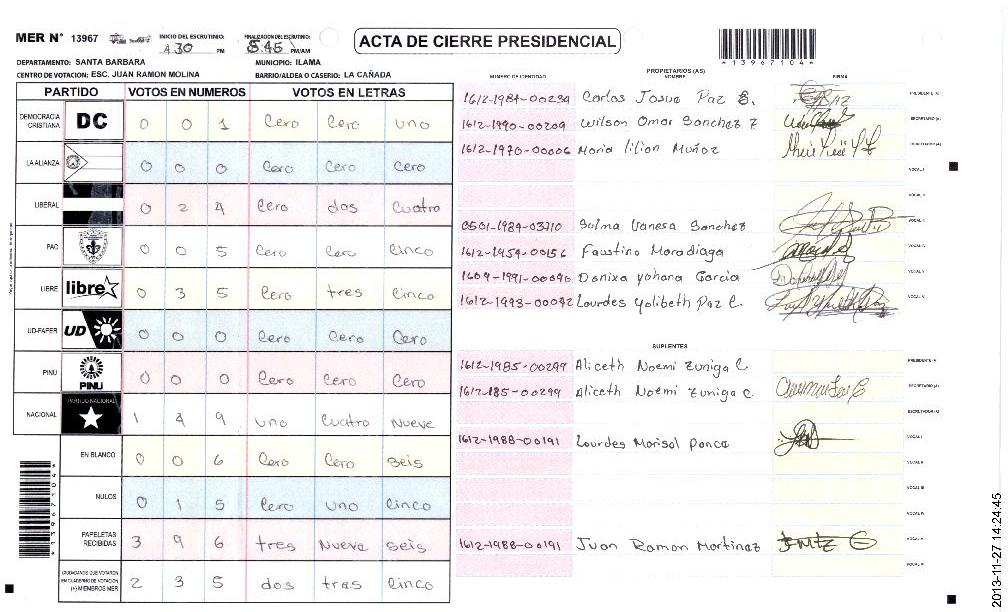 MER N° 13967
INICIO DEL ESCRUTINIO: 4 30 PM
FINALIZACION DEL ESCRUTINIO: 8:45 PM/AM
ACTA DE CIERRE PRESIDENCIAL
*13967104*
DEPARTAMENTO: SANTA BARBARA MUNICIPIO: ILAMA
CENTRO DE VOTACION: ESC. JUAN RAMON MOLINA BARRIO/ALDEA O CASERIO: LA CAÑADA
PARTIDO VOTOS EN NUMEROS VOTOS EN LETRAS
DEMOCRACIA CRISTIANA DC 0 0 1 Cero Cero uno
LA ALIANZA 0 0 0 Cero Cero Cero
LIBERAL 0 2 4 Cero dos Cuatro
PAC 0 0 5 Cero Cero Cinco
LIBRE libre 0 3 5 Cero tres Cinco
UD-FAPER UD 0 0 0 Cero Cero Cero
PINU PINU 0 0 0 Cero Cero Cero
NACIONAL PARTIDO NACIONAL 1 4 9 uno Cuatro Nueve
EN BLANCO 0 0 6 Cero Cero seis
NULOS 0 1 5 Cero uno Cinco
PAPELETAS RECIBIDAS 3 9 6 tres Nueve seis
CIUDADANOS QUE VOTARON EN CUADERNO DE VOTACION (+) MIEMBROS MER 2 3 5 dos tras Cinco
*13967104*
PROPIETARIOS (AS)
NUMERO DE IDENTIDAD NOMBRE FIRMA
1612-1984-00239 Carlos Josue Paz B. PRESIDENTE (A)
1612-1990-00209 Wilson Omar Sanchez Z SECRETARIO (A)
1612-1970-00006 Maria lilian Muñoz
VOCAL I
VOCAL II
0501-1984-03710 Salma Vanesa Sanchez VOCAL III
1612-1954-00156 Faustino Moradiaga VOCAL IV
1604-1991-00090 Donixa yohana Garcia VOCAL V
1612-1993-00092 Lourdes Yolibeth Paz C. VOCAL VI
SUPLENTES
1612-1985-00299 Aliceth Noemi Zuniga C. PRESIDENTE (A)
1612-185-00299 Aliceth Noemi Zuniga C. SECRETARIO (A)
ESCRUTADOR (A)
1612-1988-00191 Lourdes Marisol Ponce VOCAL I
VOCAL II
VOCAL III
VOCAL IV
1612-1988-00191 Juan Ramon Martinez VOCAL V
VOCAL VI
2013-11-27 14:24:45